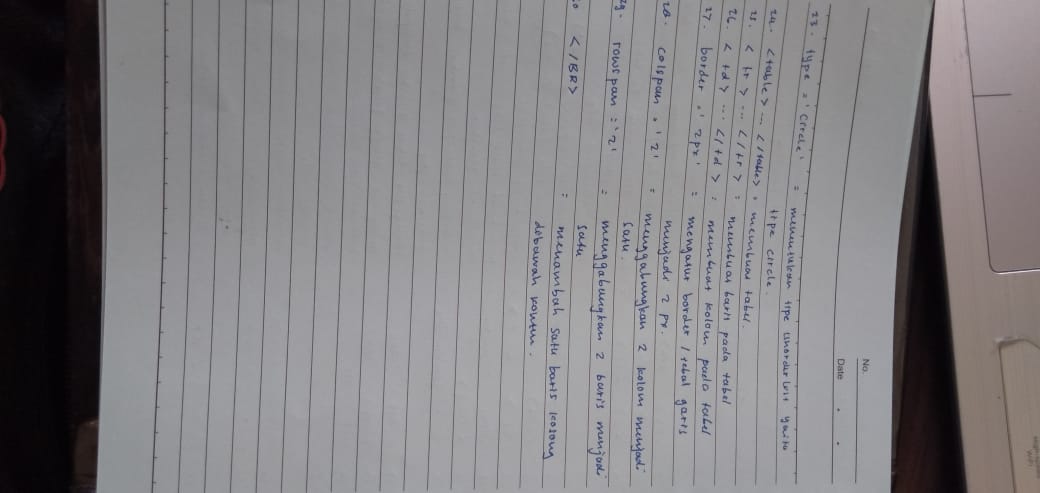 No.
Date
23. type = 'Circle' = menentukan tipe unorder list yaitu
tipe circle.
24. <table> ... </table> = membuat tabel.
25. < tr > ... </ tr > = membuat baris pada tabel
26. < td > ... </ td > = membuat kolom pada tabel
27. border = '2px' = mengatur border / tebal garis
menjadi 2 px.
28. colspan = '2' = menggabungkan 2 kolom menjadi
satu.
29. rowspan = '2' = menggabungkan 2 baris menjadi
satu
30 </BR> = menambah satu baris kosong
dibawah konten.